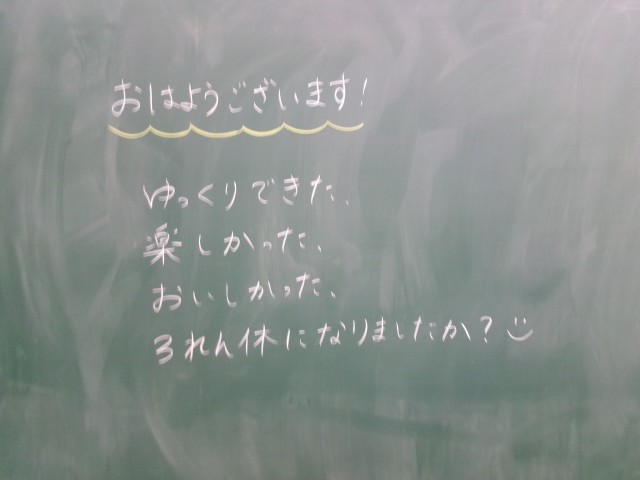 おはようございます!
ゆっくりできた、
楽しかった、
おいしかった、
3れん休になりましたか?